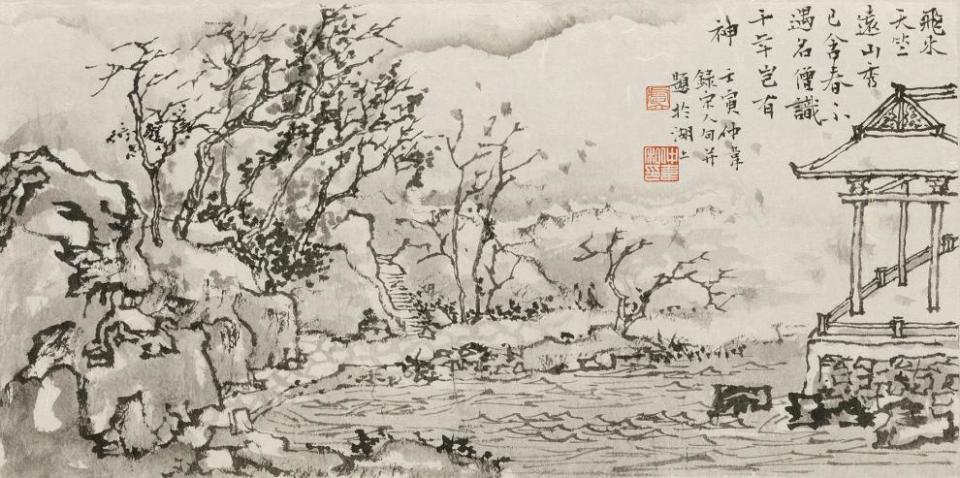 飛來
天竺
遠山秀
已含春不
遇名僧識
千年豈有
神
壬寅仲葦
錄宋人句并
題於湖上